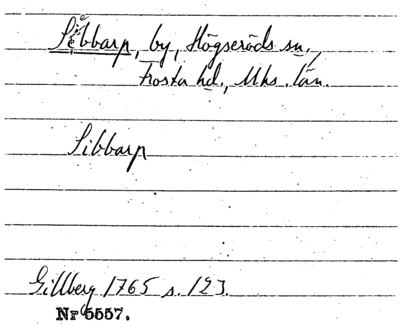 Sibbarp, by, Högseröds sn.,
Frosta hd., Mhs. län.
Sibbarp
Gillberg 1765 s. 123.
Nr 5557.